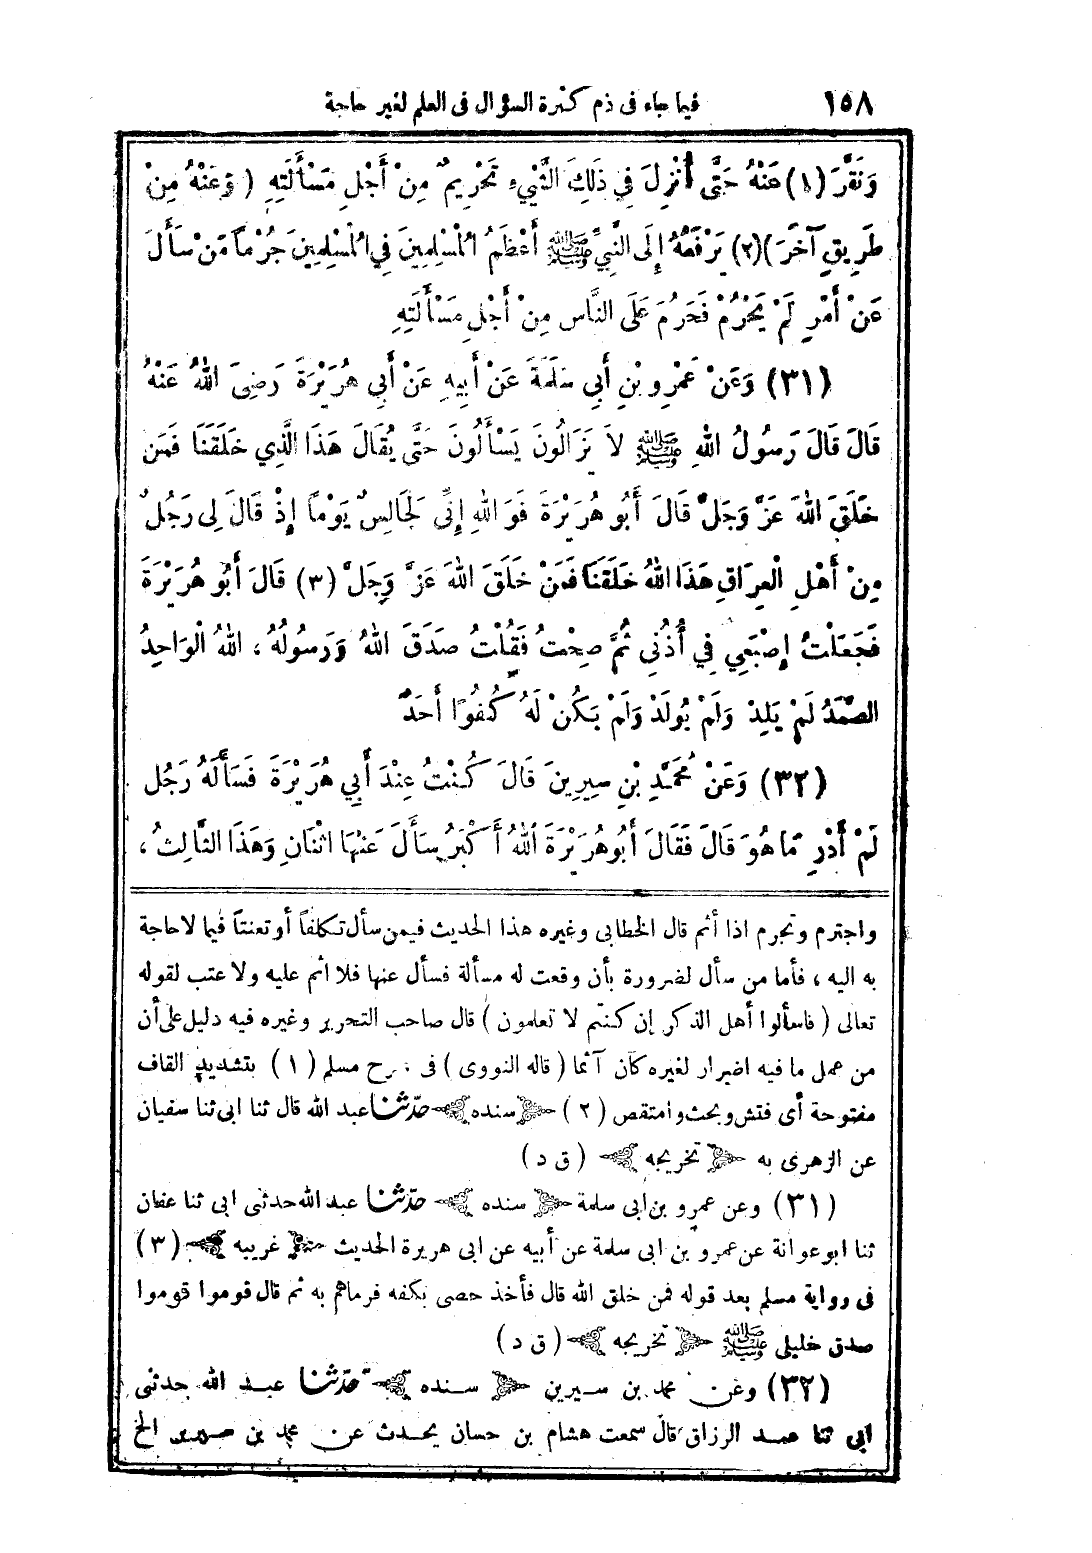 ١٥٨ فيما جاء فى ذم كثرة السؤال فى العلم لغير حاجة
وَنَقَّرَ (١) عَنْهُ حَتَّى أُنْزِلَ فِي ذَلِكَ الشَّيْءِ تَحْرِيمٌ مِنْ أَجْلِ مَسْأَلَتِهِ ( وَعَنْهُ مِنْ
طَرِيقٍ آخَرَ )(٢) يَرْفَعُهُ إِلَى النَّبِيِّ ﷺ أَعْظَمُ الْمُسْلِمِينَ فِي الْمُسْلِمِينَ جُرْمًا مَنْ سَأَلَ
عَنْ أَمْرٍ لَمْ يَحْرُمْ فَحَرُمَ عَلَى النَّاسِ مِنْ أَجْلِ مَسْأَلَتِهِ
(٣١) وَعَنْ عَمْرِو بْنِ أَبِي سَلَمَةَ عَنْ أَبِيهِ عَنْ أَبِي هُرَيْرَةَ رَضِيَ اللهُ عَنْهُ
قَالَ قَالَ رَسُولُ اللهِ ﷺ لاَ يَزَالُونَ يَسْأَلُونَ حَتَّى يُقَالَ هَذَا الَّذِي خَلَقَنَا فَمَن
خَلَقَ اللهَ عَزَّ وَجَلَّ قَالَ أَبُو هُرَيْرَةَ فَوَاللهِ إِنِّي لَجَالِسٌ يَوْمًا إِذْ قَالَ لِى رَجُلٌ
مِنْ أَهْلِ الْعِرَاقِ هَذَا اللهُ خَلَقَنَا فَمَنْ خَلَقَ اللهَ عَزَّ وَجَلَّ (٣) قَالَ أَبُو هُرَيْرَةَ
فَجَعَلْتُ إِصْبَعِي فِي أُذُنِي ثُمَّ صِحْتُ فَقُلْتُ صَدَقَ اللهُ وَرَسُولُهُ ، اللهُ الْوَاحِدُ
الصَّمَدُ لَمْ يَلِدْ وَلَمْ يُولَدْ وَلَمْ يَكُنْ لَهُ كُفُوًا أَحَدٌ
(٣٢) وَعَنْ مُحَمَّدِ بْنِ سِيرِينَ قَالَ كُنْتُ عِنْدَ أَبِي هُرَيْرَةَ فَسَأَلَهُ رَجُل
لَمْ أَدْرِ مَا هُوَ قَالَ فَقَالَ أَبُو هُرَيْرَةَ اللهُ أَكْبَرُ سَأَلَ عَنْهَا اثْنَانِ وَهَذَا الثَّالِثُ ،
واجترم وتجرم اذا أثم قال الخطابى وغيره هذا الحديث فيمن سأل تكلفاً أو تعنتاً فيما لا حاجة
به اليه ، فأما من سأل لضرورة بأن وقعت له مسألة فسأل عنها فلا اثم عليه ولا عتب لقوله
تعالى ( فاسألوا أهل الذكر إن كنتم لا تعلمون ) قال صاحب التحرير وغيره فيه دليل على أن
من عمل ما فيه اضرار لغيره كان آثما ( قاله النووى ) فى شرح مسلم (١) بتشديد القاف
مفتوحة أى فتش وبحث وامتقص (٢) سنده حدّثنا عبد الله قال ثنا ابى ثنا سفيان
عن الزهرى به تخريجه ( ق د )
(٣١) وعن عمرو بن ابى سلمة سنده حدّثنا عبد الله حدثنى ابى ثنا عفان
ثنا ابو عوانة عن عمرو بن ابى سلمة عن أبيه عن ابى هريرة الحديث غريبه (٣)
فى رواية مسلم بعد قوله فمن خلق الله قال فأخذ حصى بكفه فرماهم به ثم قال قوموا قوموا
صدق خليلى ﷺ تخريجه ( ق د )
(٣٢) وعن محمد بن سيرين سنده حدّثنا عبد الله حدثنى
ابى ثنا عبد الرزاق قال سمعت هشام بن حسان يحدث عن محمد بن سيرين الخ